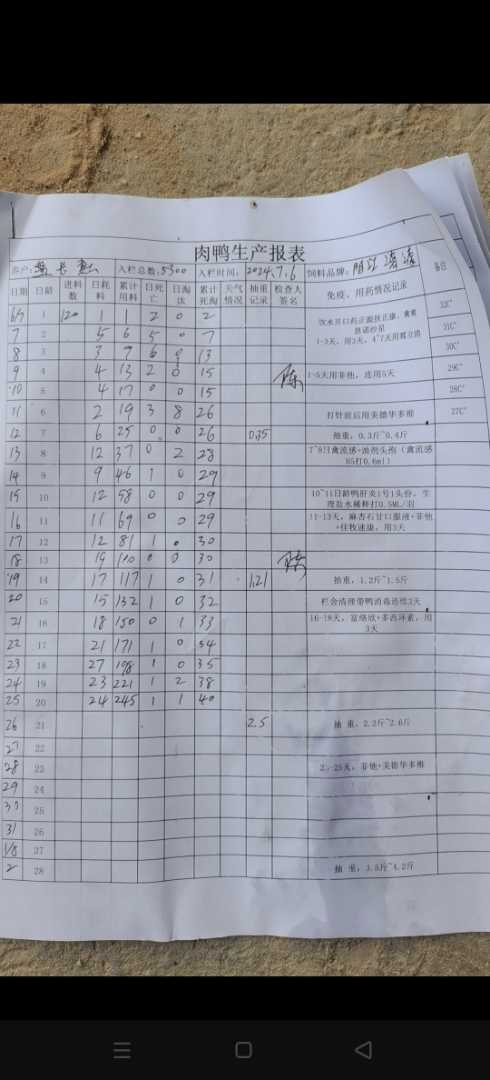 肉鸭生产报表
客户: 入栏总数:5300 入栏时间: 2024.7.6 饲料品牌: 备注
日期 日龄 进料数 日耗料 累计用料 日死亡 日淘汰 累计死淘 天气情况 抽重记录 检查人签名 免疫、用药情况记录
6/7 1 120 1 1 2 0 2 33C°
7 2 5 6 5 0 7 1-3天,用3天,4~7天用 31C°
8 3 3 9 6 0 13 30C°
9 4 4 13 2 0 15 陈 1-5天用非他,连用5天 29C°
10 5 4 17 0 0 15 28C°
11 6 2 19 3 8 26 打针前后用美德华多维 27C°
12 7 6 25 0 0 26 0.35 抽重,0.3斤~0.4斤
13 8 12 37 0 2 28 7~8日禽流感+油剂头孢(禽流感H5打0.6ml)
14 9 9 46 1 0 29
15 10 12 58 0 0 29 10~11日龄鸭肝炎1号1头份,生理盐水稀释打0.5ML/羽
16 11 11 69 0 0 29 11-13天,麻杏石甘口服液+非他+住牧速康,用3天
17 12 12 81 1 0 30
18 13 19 100 0 0 30 陈
19 14 17 117 1 0 31 1.21 抽重,1.2斤~1.5斤
20 15 15 132 1 0 32 栏舍清理带鸭消毒连续3天
21 16 18 150 0 1 33 16-18天,+多西环素,用3天
22 17 21 171 1 0 34
23 18 27 198 1 0 35
24 19 23 221 1 2 38
25 20 24 245 1 1 40
26 21 2.5 抽重,2.2斤~2.6斤
27 22
28 23 23-25天,非他+美德华多维
29 24
30 25
31 26
1/8 27
2 28 抽重,3.8斤~4.2斤